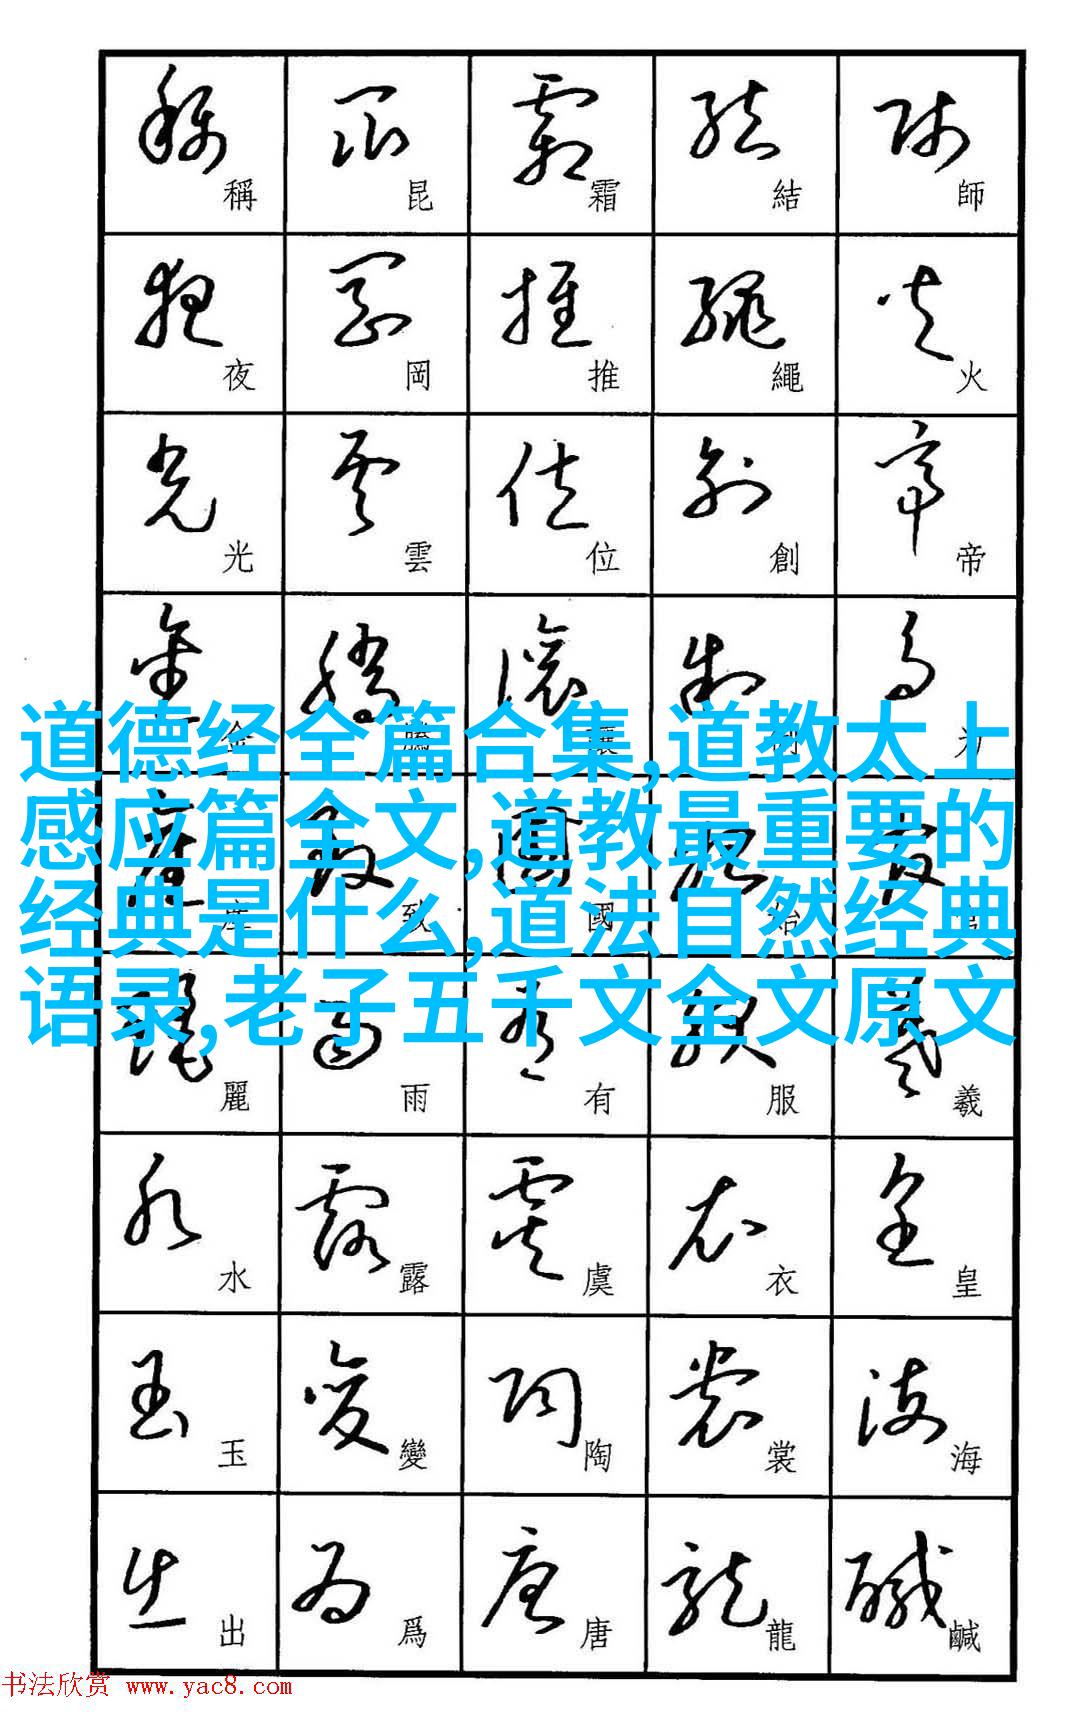 稱 昆 霜 結 師
夜 岡 推 繩 火
光 雲 位 創 帝
金 騰 讓 制 为
道德经全篇合集,道教太上
感应篇全文,道教最重要的
经典是什么,道法自然经典
语录,老子五千文全文原文
產 致 國 始 官
麗 雨 有 服 羲
水 露 虞 衣 皇
玉 變 陶 裳 海
出 爲 唐 龍 鹹
书法欣赏 www.yac8.com